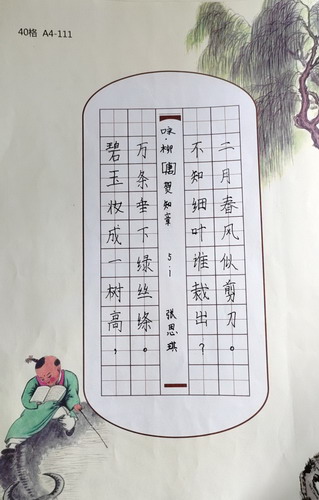 40格 A4-111
碧玉妆成一树高，
万条垂下绿丝绦。
咏·柳 [唐] 贺知章 5.1 张思琪
不知细叶谁裁出？
二月春风似剪刀。